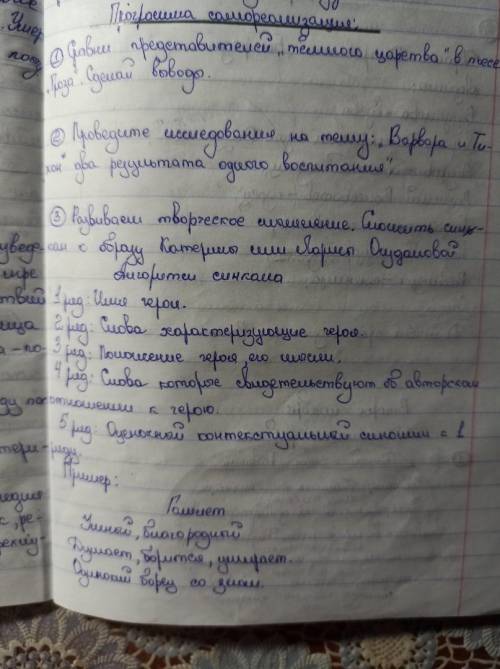 Программа самореализации:
① Сравни представителей „тёмного царства" в пьесе
„Гроза". Сделай выводы.
② Проведите исследования на тему: „Варвара и Ти-
хон" два результата одного воспитания".
③ Развиваем творческое мышление. Сложить синк-
вейн о образу Катерины или Ларисы Огудаловой
Алгоритм синкана
1 ряд: Имя героя.
2 ряд: Слова характеризующие героя.
3 ряд: Положение героя, его мысли.
4 ряд: Слова которое свидетельствуют об авторском
отношении к герою.
5 ряд: Оценочной контекстуальной синоним с 1
ряду.
Пример:
Гамлет
Умной, благородной
Думает, борится, умирает.
Одинокий борец со злом.